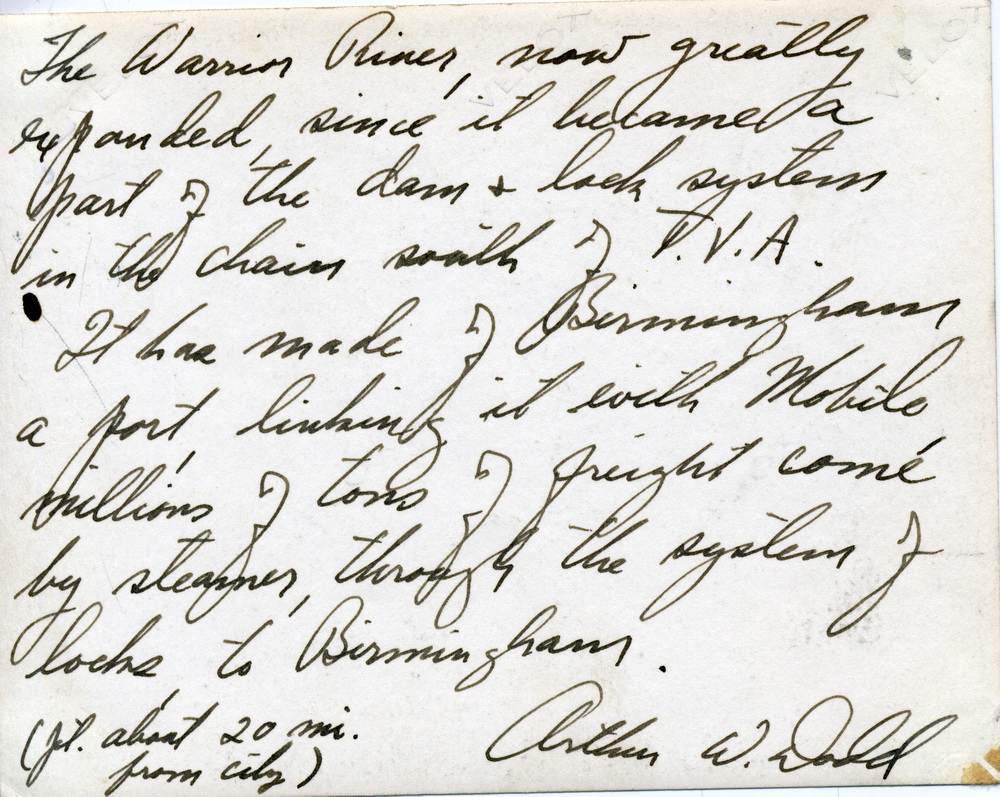 The Warrior River, now greatly
expanded, since it became a
part of the dam + lock system
in the chain south of T.V.A.
It has made of Birmingham
a port, linking it with Mobile
millions of tons of freight come
by steamer, through the system of
locks to Birmingham.
(pt. about 20 mi.
from city)
Arthur W. Dodd